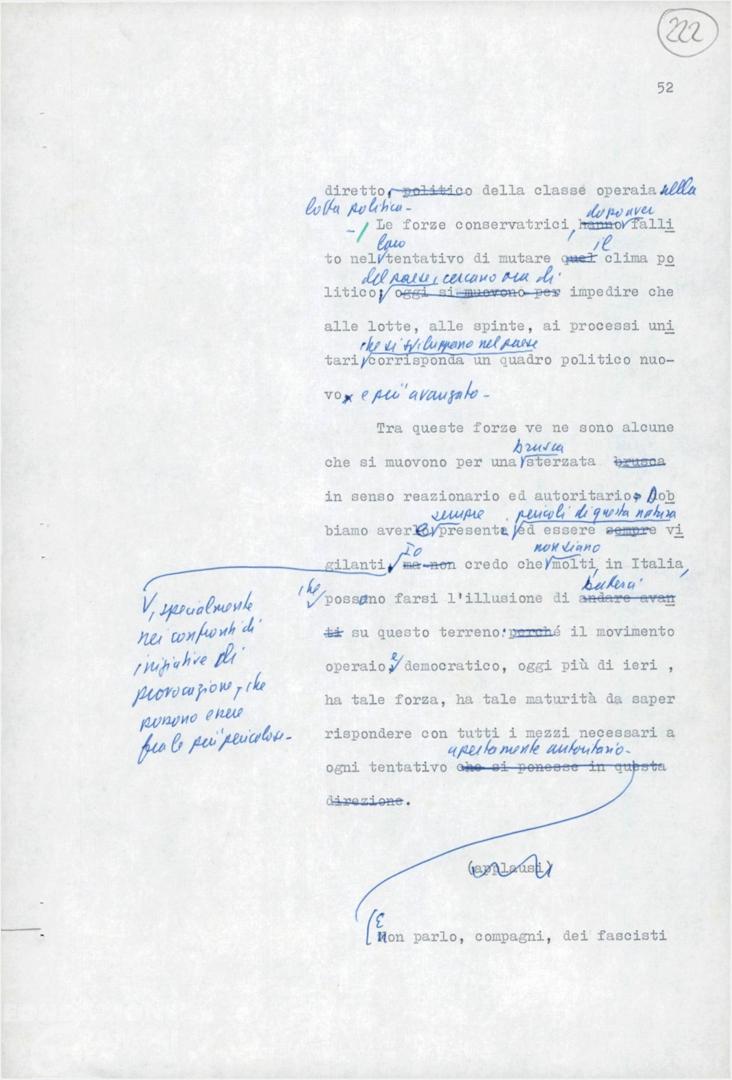 222
52
diretto, politico della classe operaia nella
lotta politica -
dopo aver
Le forze conservatrici, hanno falli
loro il
to nel tentativo di mutare quel clima po
del paese, cercano ora di
litico; oggi si muovono per impedire che
alle lotte, alle spinte, ai processi uni
che si sviluppano nel paese
tari corrisponda un quadro politico nuo-
vo, e più avanzato -
Tra queste forze ve ne sono alcune
brusca
che si muovono per una sterzata brusca
in senso reazionario ed autoritario. Dob
sempre pericoli di questa natura
biamo aver presenti ed essere sempre vi
Io non siano
gilanti, ma non credo che molti, in Italia,
che battersi
possano farsi l'illusione di andare avan
ti su questo terreno: perché il movimento
operaio e democratico, oggi più di ieri ,
ha tale forza, ha tale maturità da saper
rispondere con tutti i mezzi necessari a
apertamente autoritario -
ogni tentativo che si ponesse in questa
direzione.
V, specialmente
nei confronti di
iniziative di
provocazione, che
possono essere
fra le più pericolose -
(applausi)
E
Non parlo, compagni, dei fascisti